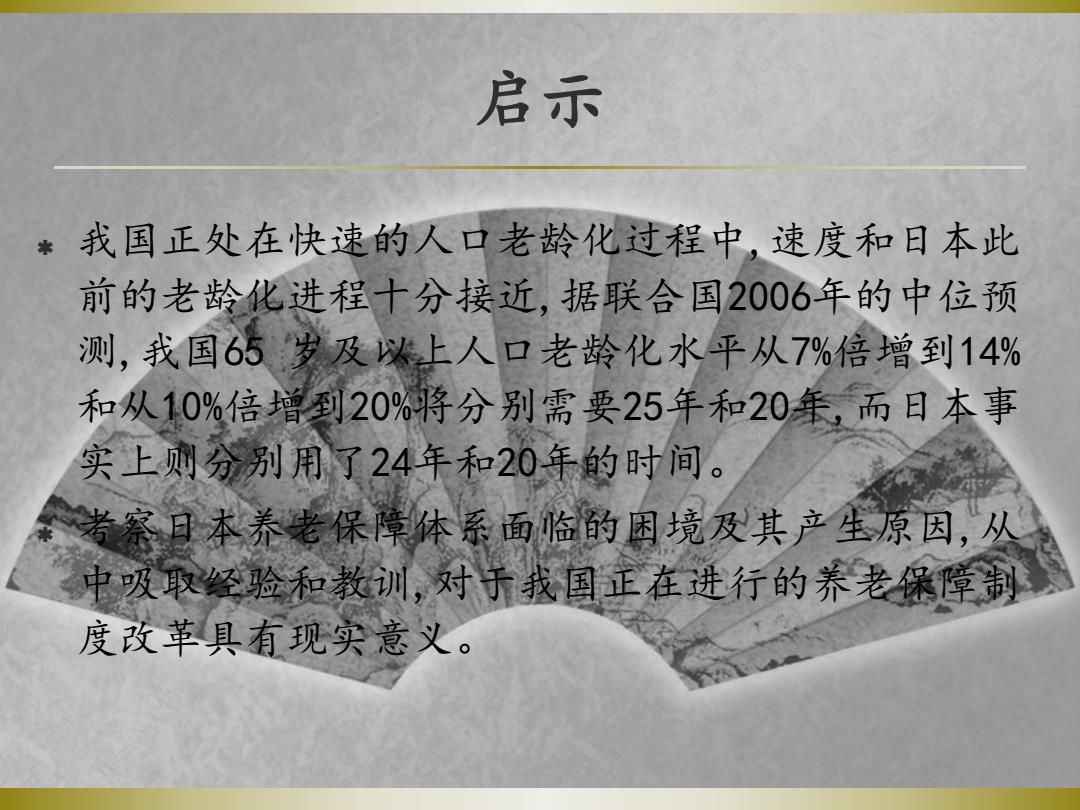 启示
* 我国正处在快速的人口老龄化过程中,速度和日本此
前的老龄化进程十分接近,据联合国2006年的中位预
测,我国65 岁及以上人口老龄化水平从7%倍增到14%
和从10%倍增到20%将分别需要25年和20年,而日本事
实上则分别用了24年和20年的时间。
* 考察日本养老保障体系面临的困境及其产生原因,从
中吸取经验和教训,对于我国正在进行的养老保障制
度改革具有现实意义。